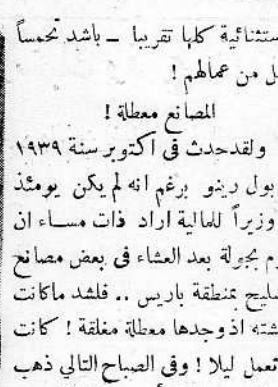 ستثنائية كلها تقريبا – باشد تحمساً
ل من عمالهم !
المصانع معطلة !
ولقد حدث فى اكتوبر سنة ١٩٣٩
بول رينو برغم انه لم يكن يومئذ
وزيراً للمالية اراد ذات مساء ان
م بجولة بعد العشاء فى بعض مصانع
سليح بمنطقة باريس .. فلشد ماكانت
شته اذ وجدها معطلة مغلقة ! كانت
تعمل ليلا ! وفى الصباح التالي ذهب